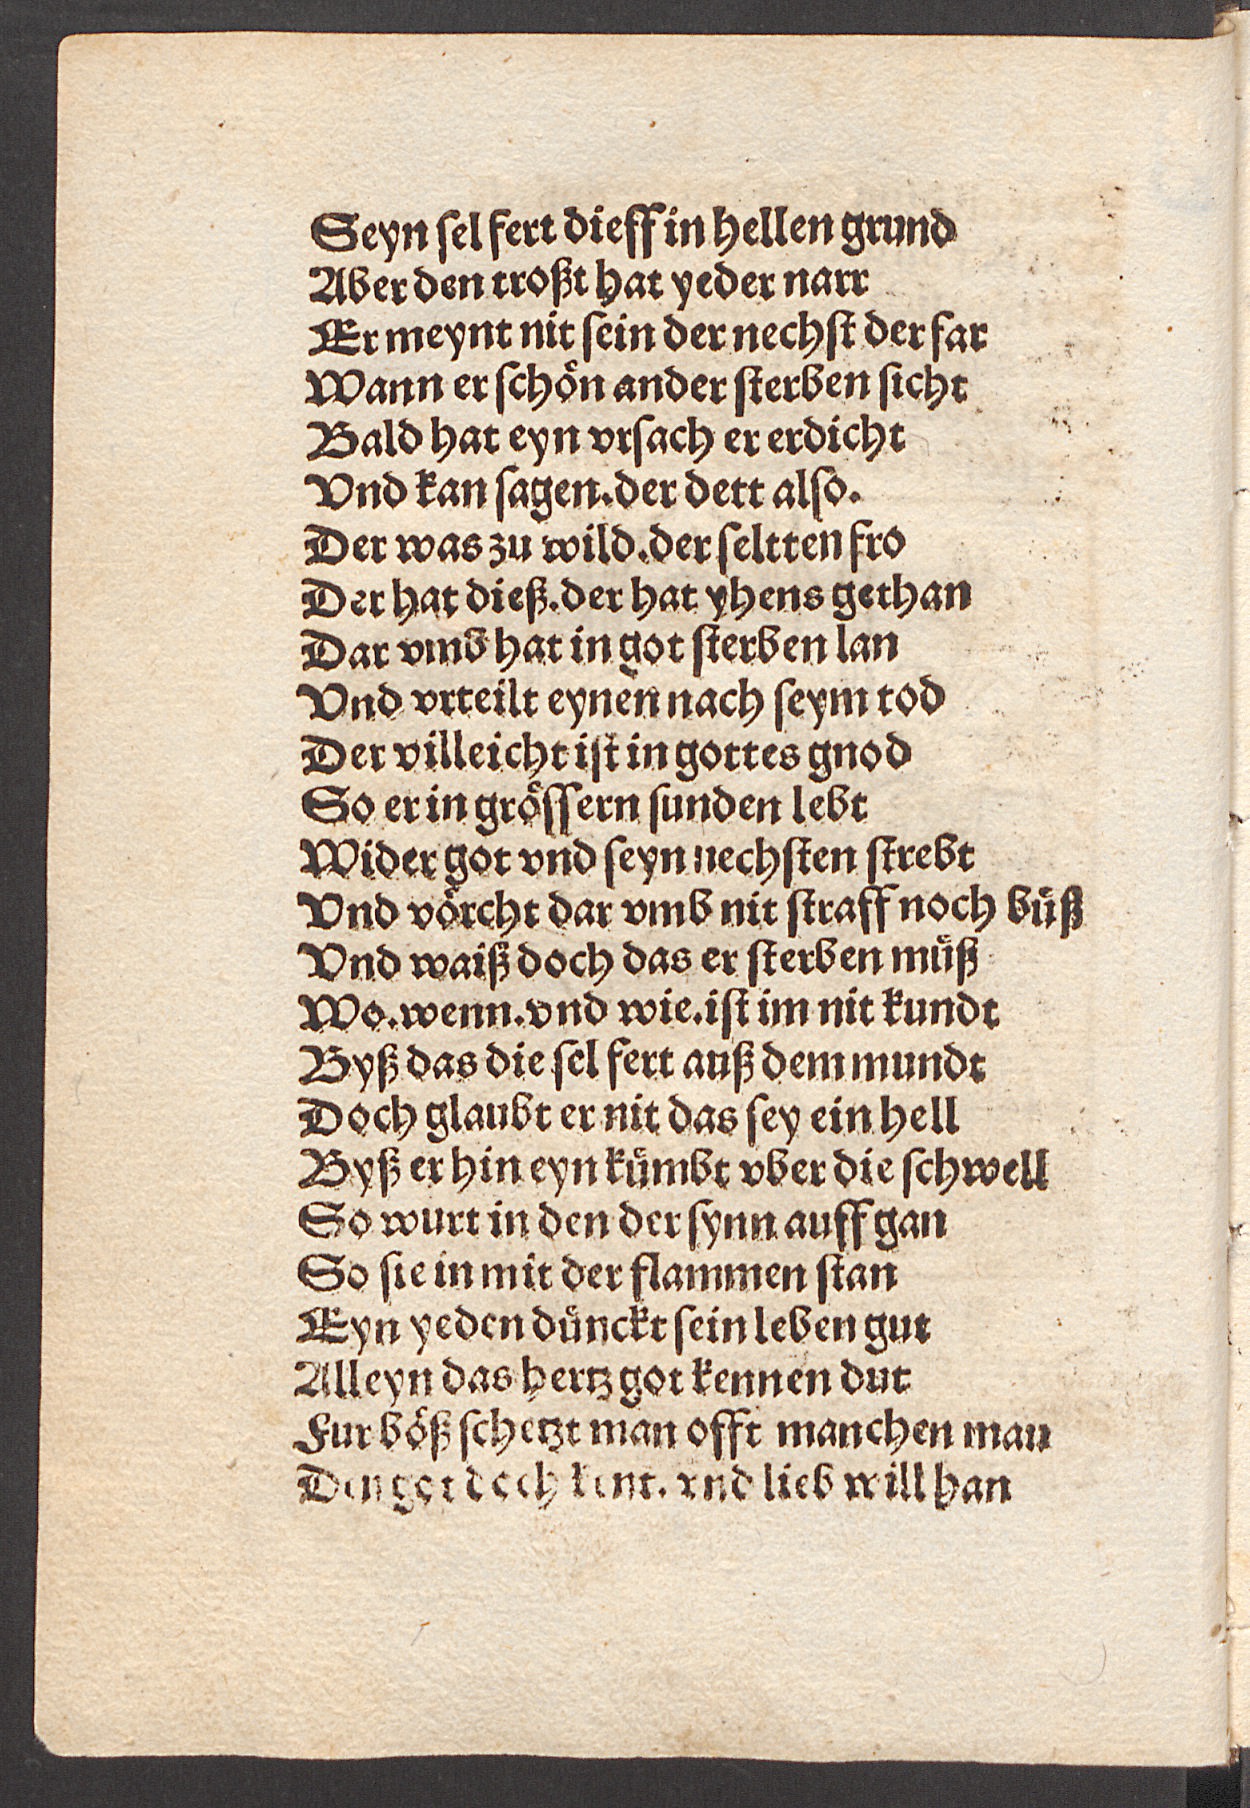 Seyn ſel fert dieff in hellen grund
Aber den troßt hat yeder narr
Er meynt nit ſein der nechſt der far
Wann er ſchoͤn ander ſterben ſicht
Bald hat eyn vrſach er erdicht
Vnd kan ſagen.der dett alſo.
Der was zu wild.der ſeltten fro
Der hat dieß.der hat yhens gethan
Dar vmb hat in got ſterben lan
Vnd vrteilt eynen nach ſeym tod
Der villeicht iſt in gottes gnod
So er in groͤſſern ſunden lebt
Wider got vnd ſeyn nechſten ſtrebt
Vnd voͤrcht dar vmb nit ſtraff noch buͤß
Vnd waiß doch das er ſterben muͤß
Wo.wenn.vnd wie.iſt im nit kundt
Byß das die ſel fert auß dem mundt
Doch glaubt er nit das ſey ein hell
Byß er hin eyn kuͤmbt vber die ſchwell
So wurt in den der ſynn auff gan
So ſie in mit der flammen ſtan
Eyn yeden duͤnckt ſein leben gut
Alleyn das hertz got kennen dut
Fur boͤß ſchetzt man offt manchen man
Den got doch kent. vnd lieb will han